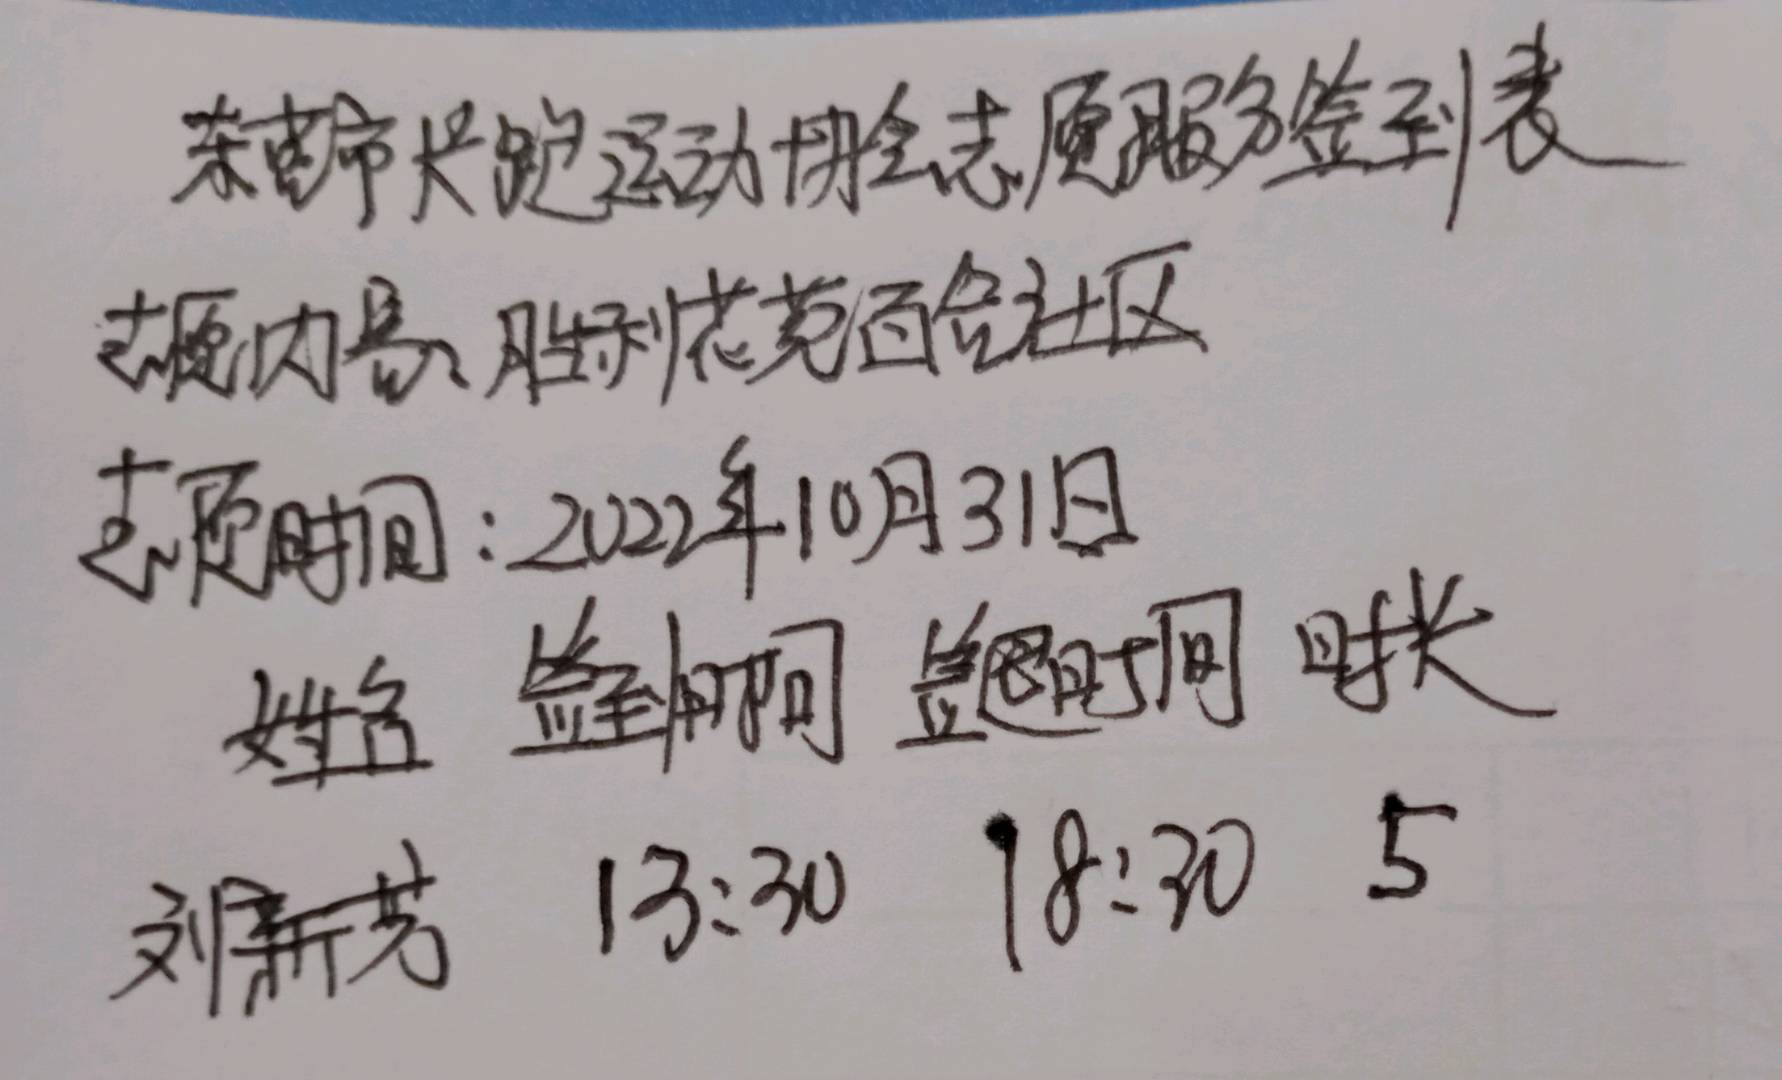 莱芜市长跑运动协会志愿服务签到表
志愿内容：胜利花苑百合社区
志愿时间：2022年10月31日
姓名 签到时间 签退时间 时长
刘新芳 13:30 18:30 5